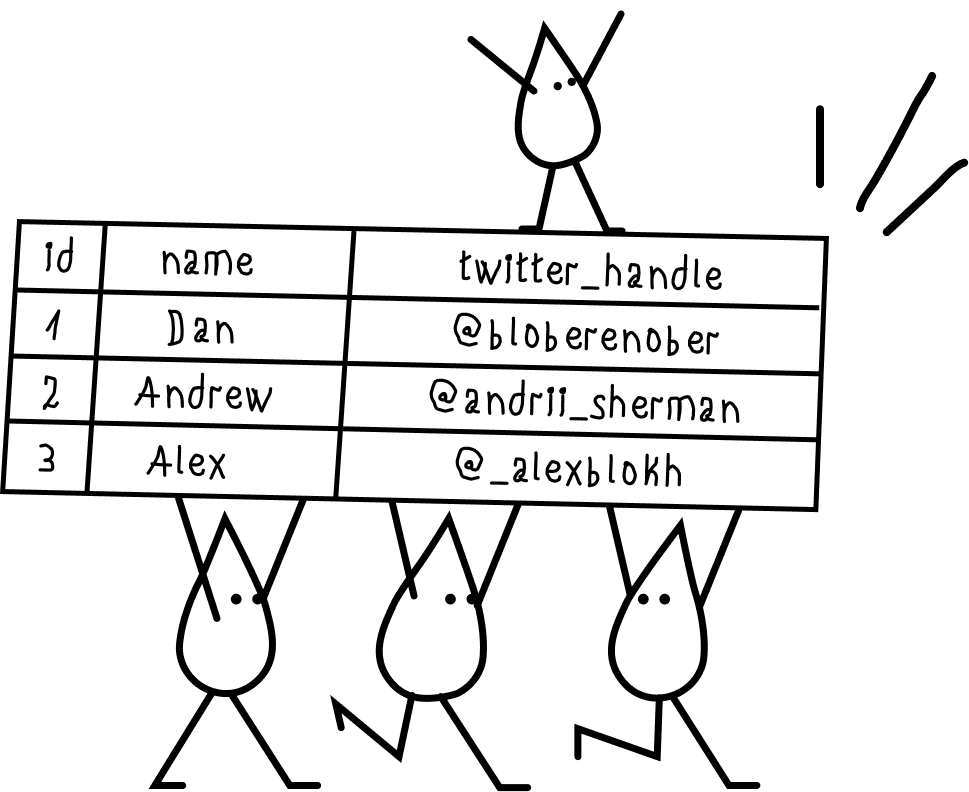 id name twitter_handle
1 Dan @bloberenober
2 Andrew @andrii_sherman
3 Alex @_alexblokh